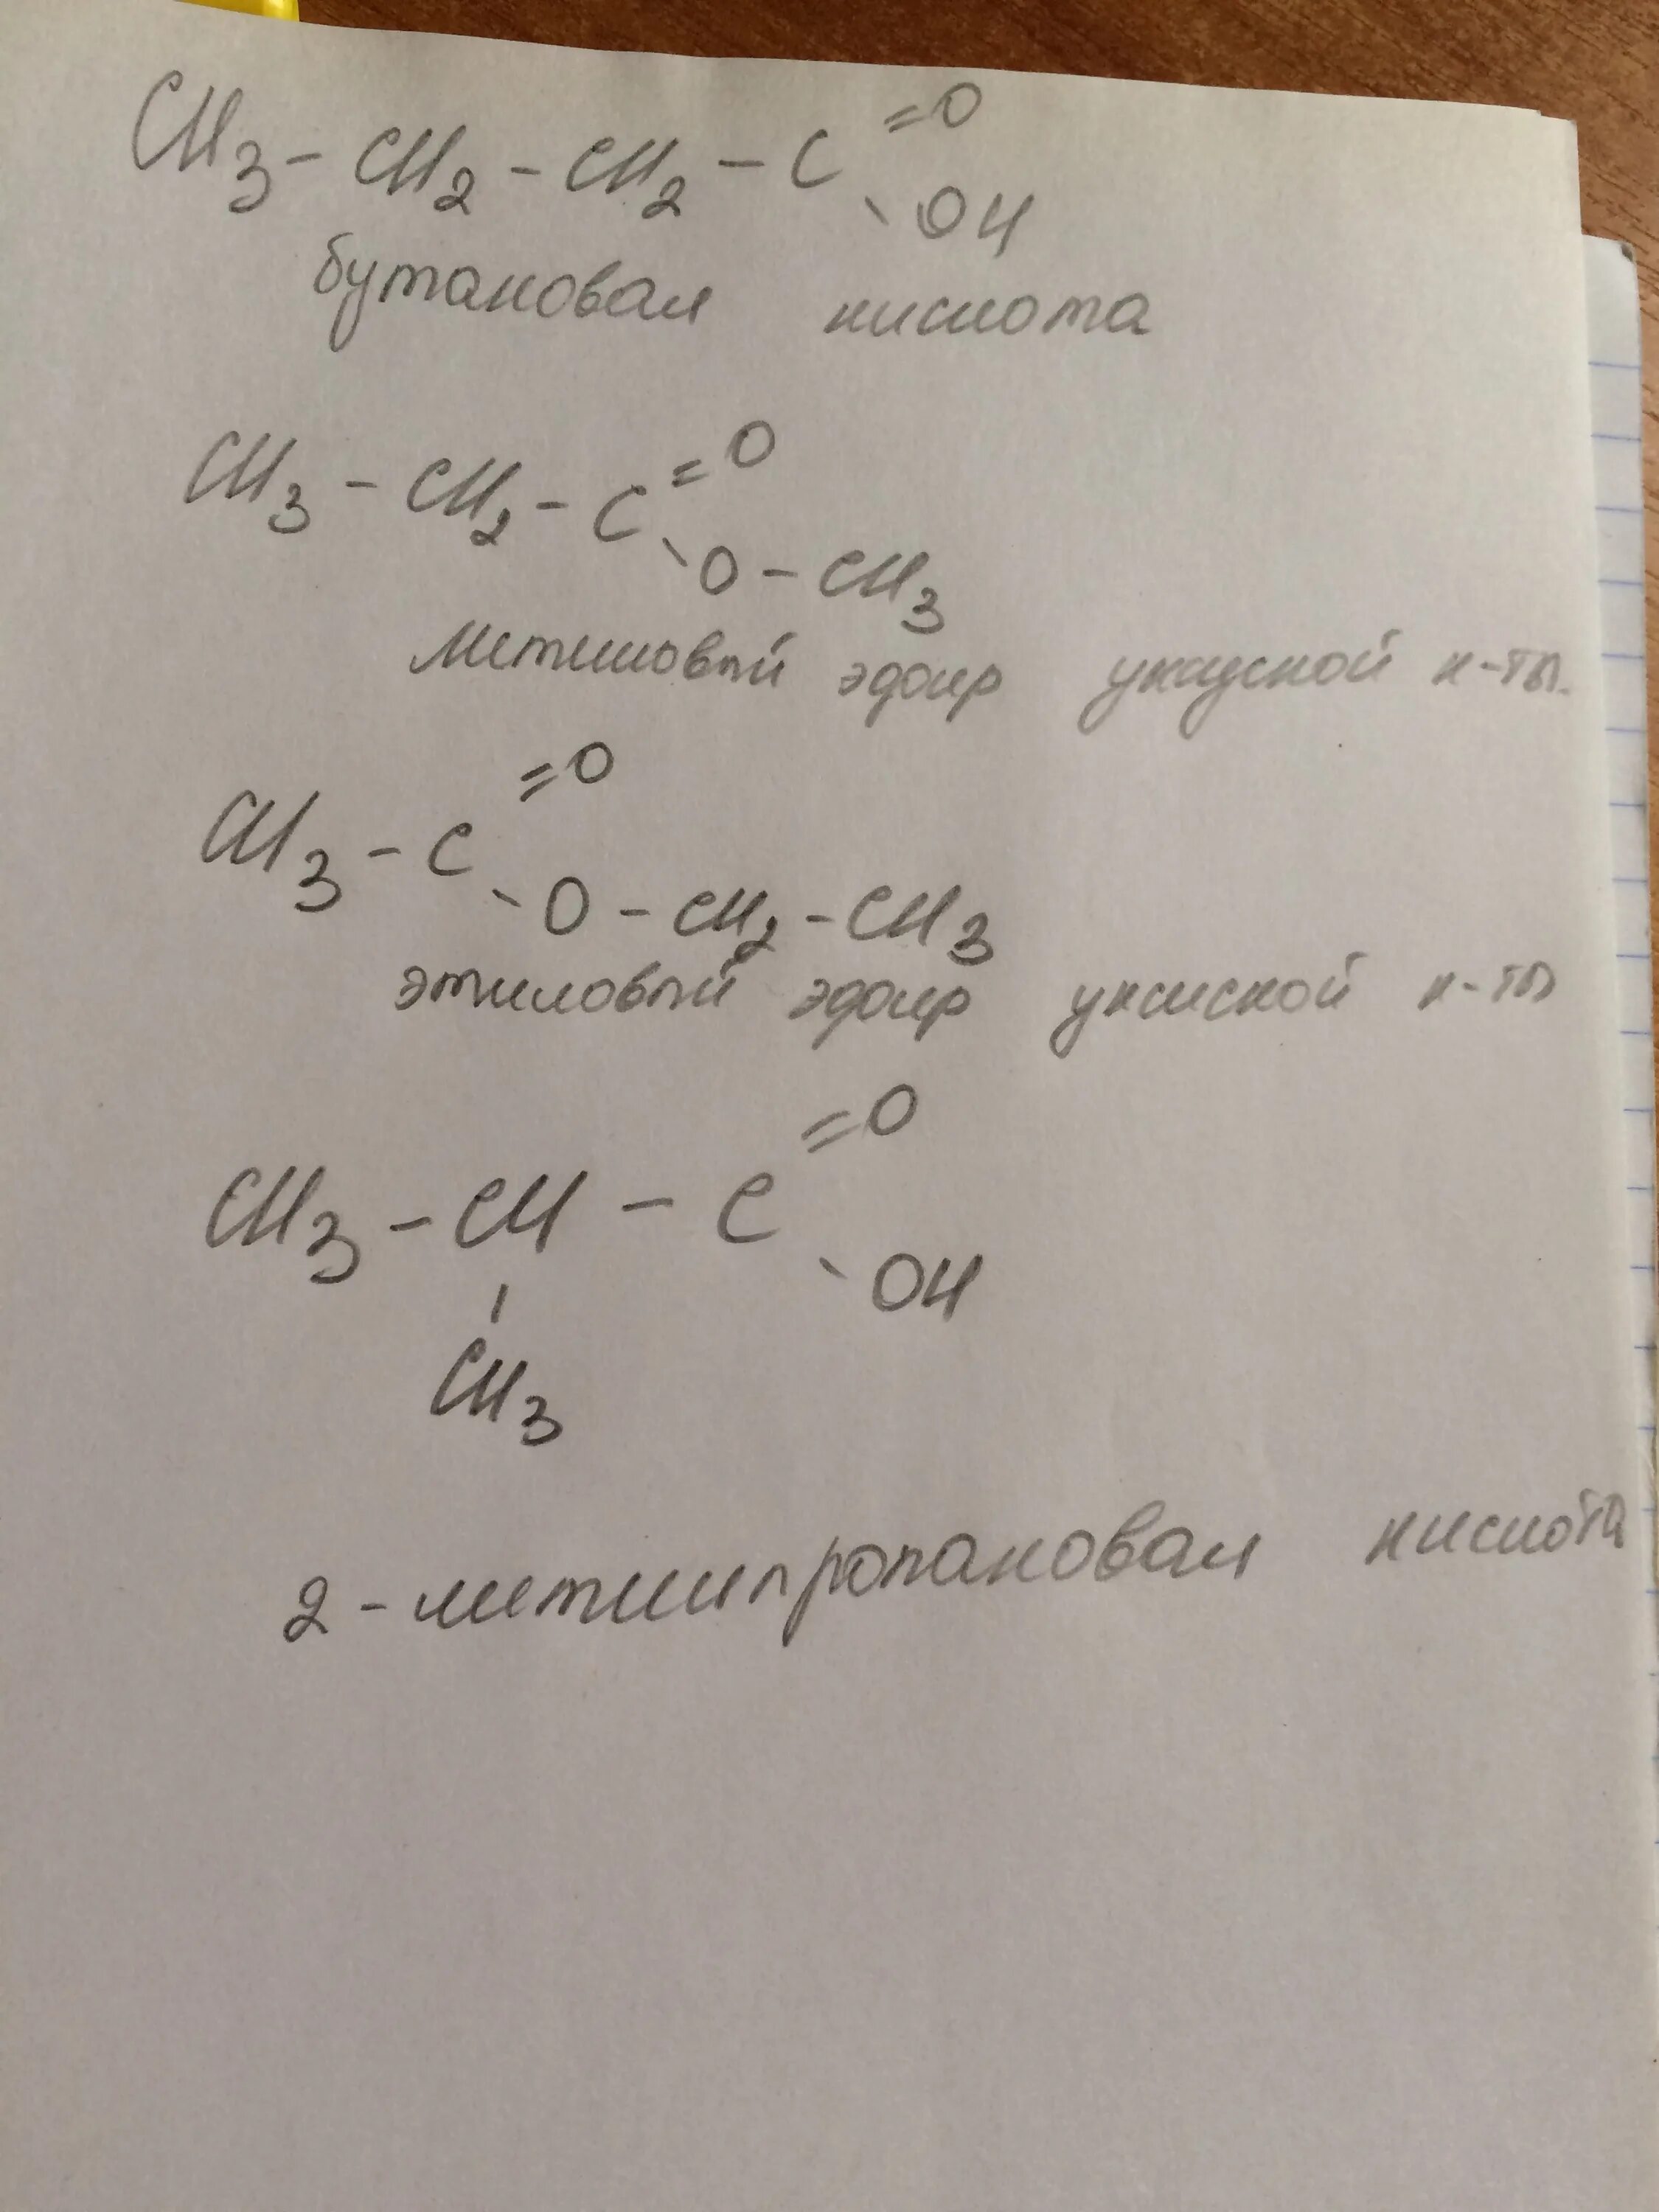 CH3 - CH2 - CH2 - C =O
- OH
бутановая кислота
CH3 - CH2 - C =O
- O - CH3
Метиловый эфир уксусной к-ты.
CH3 - C =O
- O - CH2 - CH3
этиловый эфир уксусной к-ты
CH3 - CH - C =O
- OH
CH3
2-метилпропановая кислота